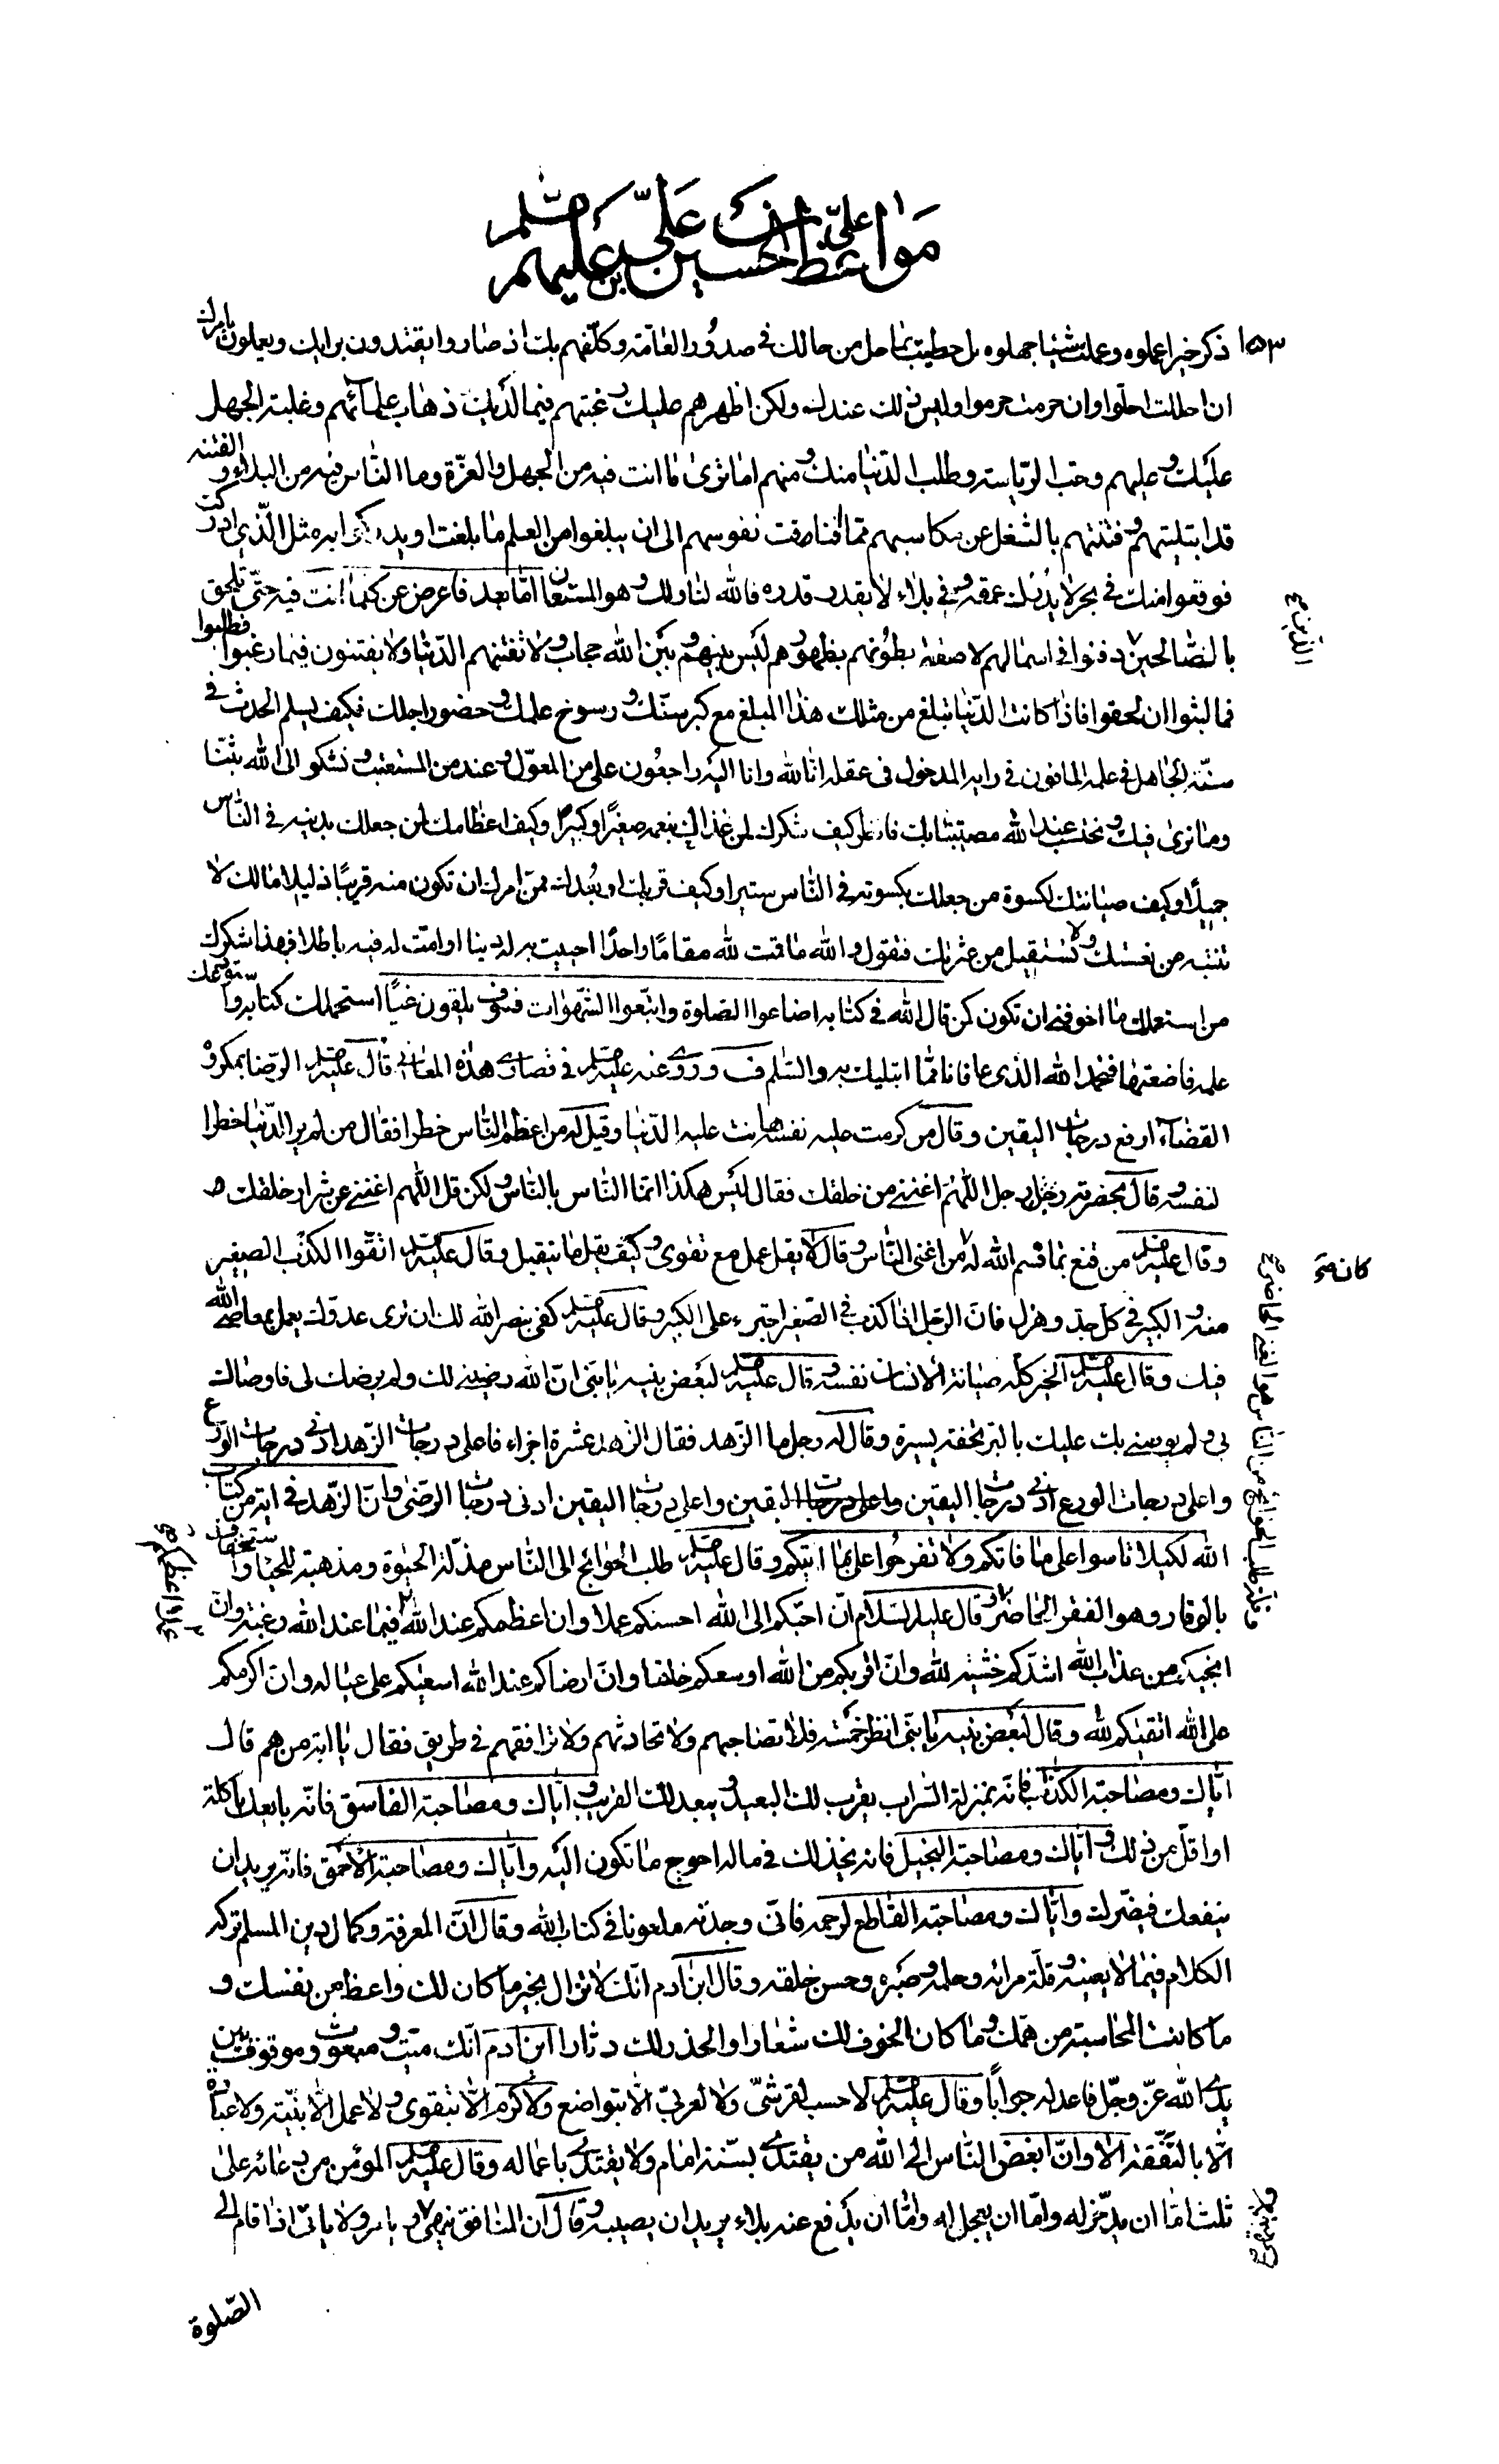 مواعظ علي بن الحسين بن علي صلى الله عليهم
١٥٣
ذكر خيرا عملوه وعملت شيئا جهلوه بل حظيت بما حل من حالك في صدور العامة وكلفهم بك اذ صاروا يقتدون برايك ويعملون بامرك
ان احللت احلوا وان حرمت حرموا وليس ذلك عندك ولكن اظهرهم عليك رغبتهم فيما لديك ذهاب علمائهم وغلبة الجهل
عليك وعليهم وحب الرياسة وطلب الدنيا منك ومنهم اما ترى ما انت فيه من الجهل والغرة وما الناس فيه من البلاء والفتنة
قد ابتليتهم وفتنتهم بالشغل عن مكاسبهم مما فتاقت نفوسهم الى ان يبلغوا من العلم ما بلغت او يدركوا به مثل الذي ادركت
فوقعوا منك في بحر لا يدرك عمقه وفي بلاء لا يقدر قدره فالله لنا ولك وهو المستعان اما بعد فاعرض عن كلما انت فيه حتى تلحق
بالصالحين دفنوا في اسمالهم لاصقة بطونهم بظهورهم ليس بينهم وبين الله حجاب ولا تفتنهم الدنيا ولا يفتنون فيما رغبوا فطلبوا
الذين ع
فما لبثوا ان لحقوا فاذا كانت الدنيا تبلغ من مثلك هذا المبلغ مع كبر سنك ورسوخ علمك وحضور اجلك فكيف يسلم الحدث في
سنه الجاهل في علمه المافون في رايه المدخول في عقله انا لله وانا اليه راجعون على من المعول وعند من المستعتب ونشكو الى الله بثنا
وما نرى فيك ونحتسب عند الله مصيبتنا بك فانظر كيف شكرك لمن غذاك بنعمه صغيرا وكبيرا وكيف اعظامك لمن جعلك بدينه في الناس
جميلا وكيف صيانتك لكسوة من جعلك بكسوته في الناس ستيرا وكيف قربك او بعدك ممن امرك ان تكون منه قريبا ذليلا مالك لا
تنتبه من نعستك ولا تستقيل من عثرتك فتقول والله ما قمت لله مقاما واحدا احييت به له دينا او امت له فيه باطلا فهذا شكرك
من استعملك ما اخوفني ان تكون كمن قال الله في كتابه اضاعوا الصلوة واتبعوا الشهوات فسوف يلقون غيا استحملك كتابه واستودعك
علمه فاضعتها فنحمد الله الذي عافانا مما ابتليك به والسلم ف وروي عنه عليه صلم في قصار هذه المعاني قال عليه صلم الرضا بمكروه
القضاء ارفع درجات اليقين وقال من كرمت عليه نفسه هانت عليه الدنيا وقيل له من اعظم الناس خطرا فقال من لم ير الدنيا خطرا
لنفسه وقال بحضرته رجل رجل اللهم اغنني من خلقك فقال ليس هكذا انما الناس بالناس ولكن قل اللهم اغنني عن شرار خلقك
وقال عليه صلم من قنع بما قسم الله له من اغنى الناس وقال لا يقل عمل مع تقوى وكيف يقل ما يتقبل وقال عليه صلم اتقوا الكذب الصغير
كان خ
منه والكبير في كل جد وهزل فان الرجل اذا كذب في الصغير اجترء على الكبير وقال عليه صلم كفى بنصر الله لك ان ترى عدوك يعمل بمعاصي الله
فيك وقال عليه صلم الخير كله صيانة الانسان نفسه وقال عليه صلم لبعض بنيه يا بني ان الله رضيني لك ولم يرضك لي فاوصاك
بي ولم يوصني بك عليك بالبر تحفة يسيرة وقال له رجل ما الزهد فقال الزهد عشرة اجزاء فاعلى درجات الزهد ادنى درجات الورع
واعلى درجات الورع ادنى درجات اليقين واعلى درجات اليقين واعلى درجات اليقين ادنى درجات الرضى وان الزهد في اية من كتاب
الله لكيلا تاسوا على ما فاتكم ولا تفرحوا على بما اتيكم وقال عليه صلم طلب الحوائج الى الناس مذلة الحيوة ومذهبة للحياء واستخفاف
بالوقار وهو الفقر الحاضر وقال عليه السلام ان احبكم الى الله احسنكم عملا وان اعظمكم عند الله فيما عند الله رغبة وان
وقلة طلب الحوائج من الناس هو الغنى الحاضر ع
عملا اعظمكم ع
انجيكم من عذاب الله اشدكم خشية لله وان اقربكم من الله اوسعكم خلقا وان ارضاكم عند الله اسعيكم على عياله وان اكرمكم
على الله اتقيكم لله وقال لبعض بنيه يا بني انظر خمسة فلا تصاحبهم ولا تحادثهم ولا ترافقهم في طريق فقال يا ابة من هم قال
اياك ومصاحبة الكذاب فانه بمنزلة السراب يقرب لك البعيد ويبعد لك القريب واياك ومصاحبة الفاسق فانه بايعك باكلة
او اقل من ذلك واياك ومصاحبة البخيل فانه يخذلك في ماله احوج ما تكون اليه واياك ومصاحبة الاحمق فانه يريد ان
ينفعك فيضرك واياك ومصاحبة القاطع لرحمه فاني وجدته ملعونا في كتاب الله وقال ان المعرفة وكمال دين المسلم تركه
الكلام فيما لا يعنيه وقلة مرائه وحلمه وصبره وحسن خلقه وقال ابن ادم انك لا تزال بخير ما كان لك واعظ من نفسك و
ما كانت المحاسبة من همك وما كان الخوف لك شعارا والحذر لك دثارا ابن ادم انك ميت ومبعوث وموقوف بين
يدي الله عز وجل فاعد له جوابا وقال عليه صلم لا حسب لقرشي ولا لعربي الا بتواضع ولا كرم الا بتقوى ولا عمل الا بنية ولا عبادة
الا بالتفقه الا وان ابغض الناس الى الله من يقتدي بسنة امام ولا يقتدي باعماله وقال عليه صلم المؤمن من دعائه على
ثلث اما ان يدخر له واما ان يعجل له واما ان يدفع عنه بلاء يريد ان يصيبه وقال ان المنافق ينهى ويامر ولا ياتي اذا قام الى
ولا ينتهي ع
الصلوة